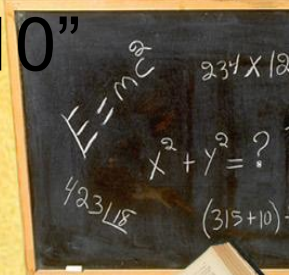 10”
E=mc²
234 X 12
x² + y² = ?
423 18
(315+10)